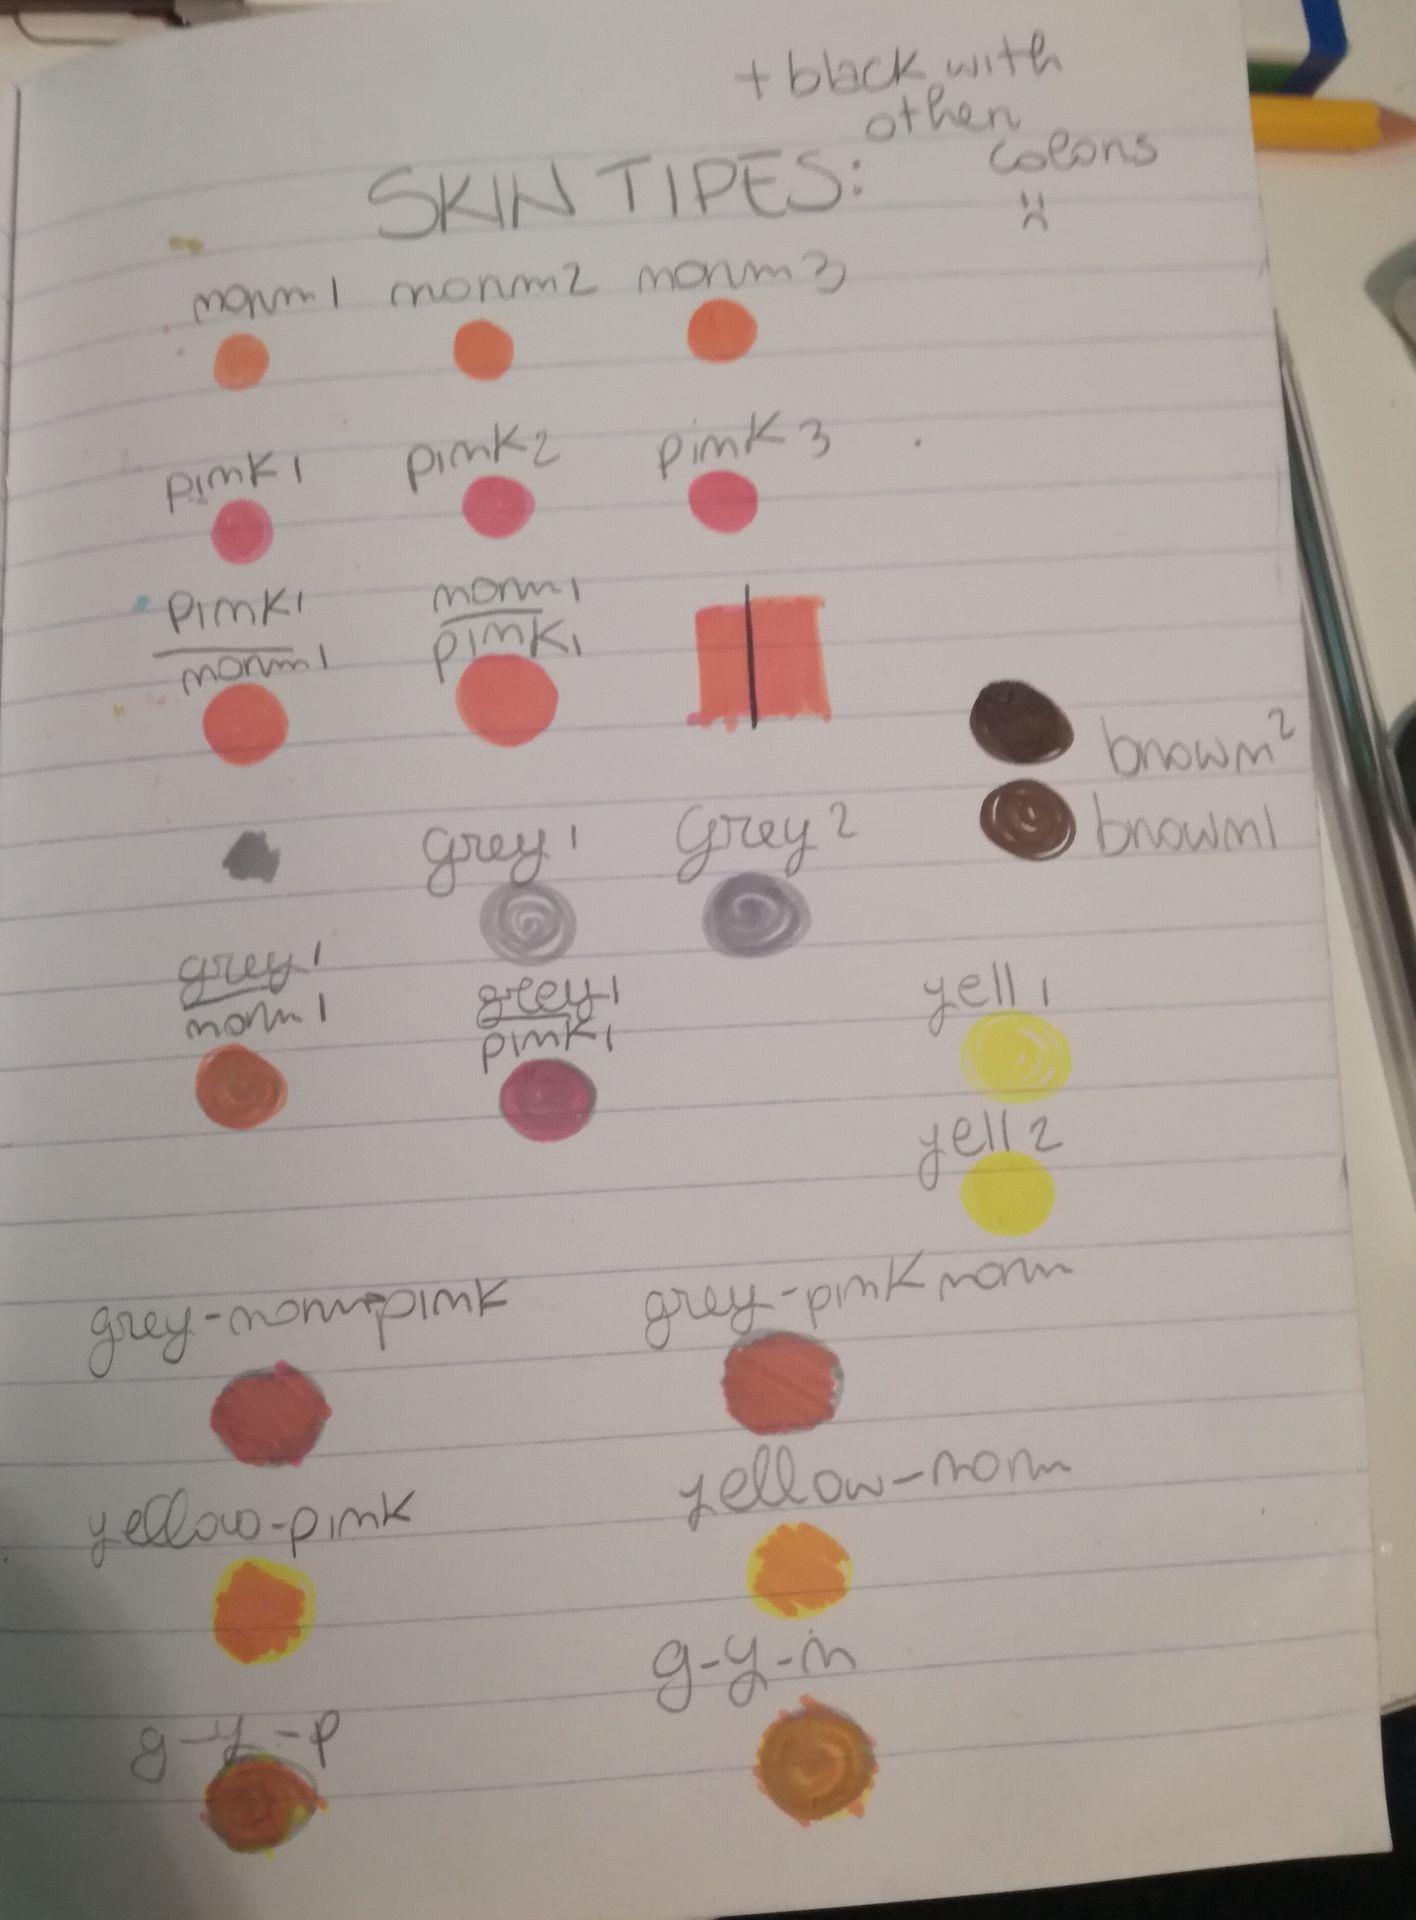 + black with
other
colors
SKIN TIPES:
norm1 norm2 norm3
pink1 pink2 pink3
pink1
norm1
norm1
pink1
brown2
brown1
grey1 grey2
grey1
norm1
grey1
pink1
yell1
yell2
grey-norm-pink
grey-pink norm
yellow-pink
yellow-norm
g-y-n
g-y-p